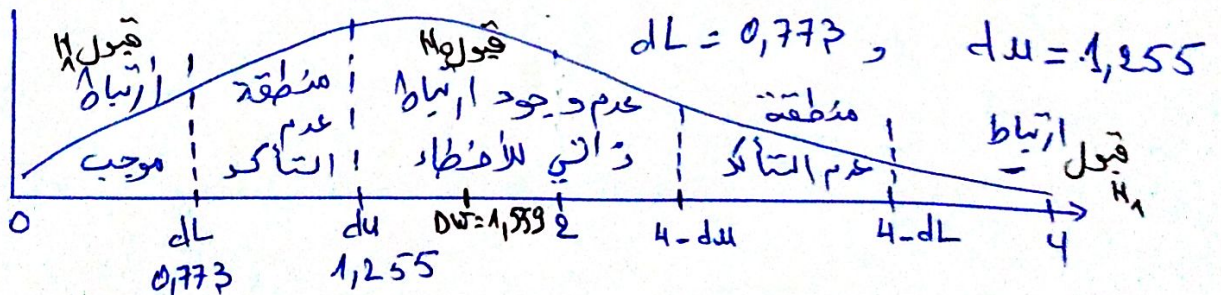 dL = 0,773 , du = 1,255
قبول H1 ارتباط موجب
منطقة عدم التأكد
قبول H0 عدم وجود ارتباط ذاتي للأخطاء
منطقة عدم التأكد
ارتباط - قبول H1
0 dL du DW=1,559 2 4-du 4-dL 4
0,773 1,255